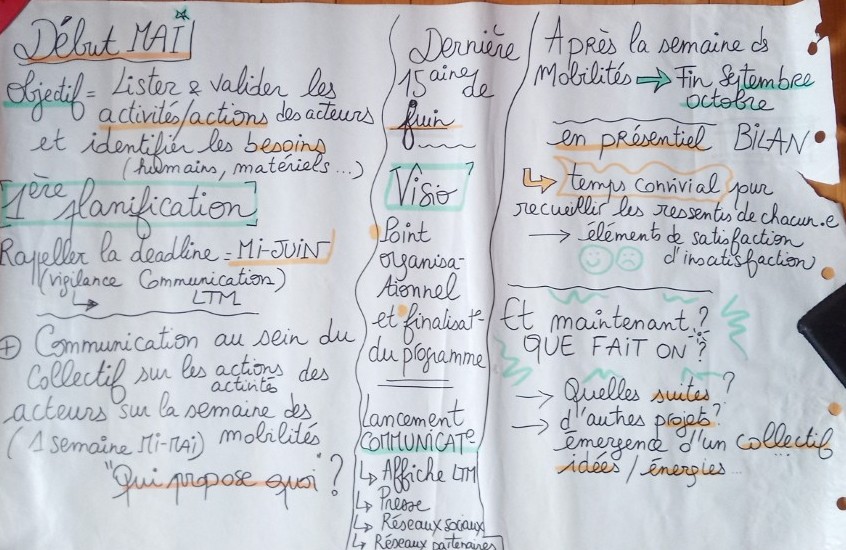 Début MAI
Objectif = Lister & valider les
activités/actions des acteurs
et identifier les besoins
(humains, matériels...)
1ère planification
Rappeller la deadline = Mi-JUIN
(vigilance Communication)
LTM
+ Communication au sein du
Collectif sur les actions des
activités
acteurs sur la semaine des
mobilités
(1 semaine Mi-MAI)
"Qui propose quoi"?
Dernière
15aine de
Juin
Visio
Point
organisa-
tionnel
et finalisat°
du programme
Lancement
COMMUNICAT°
↳ Affiche LTM
↳ Presse
↳ Réseaux sociaux
↳ Réseaux partenaires
Après la semaine ds
Mobilités ⇒ Fin Septembre
octobre
en présentiel BILAN
↳ temps convivial pour
recueillir les ressentis de chacun.e
→ éléments de satisfaction
d'insatisfaction
Et maintenant ?
QUE FAIT ON ?
→ Quelles suites ?
→ d'autres projets ?
émergence d'un collectif
idées / énergies...